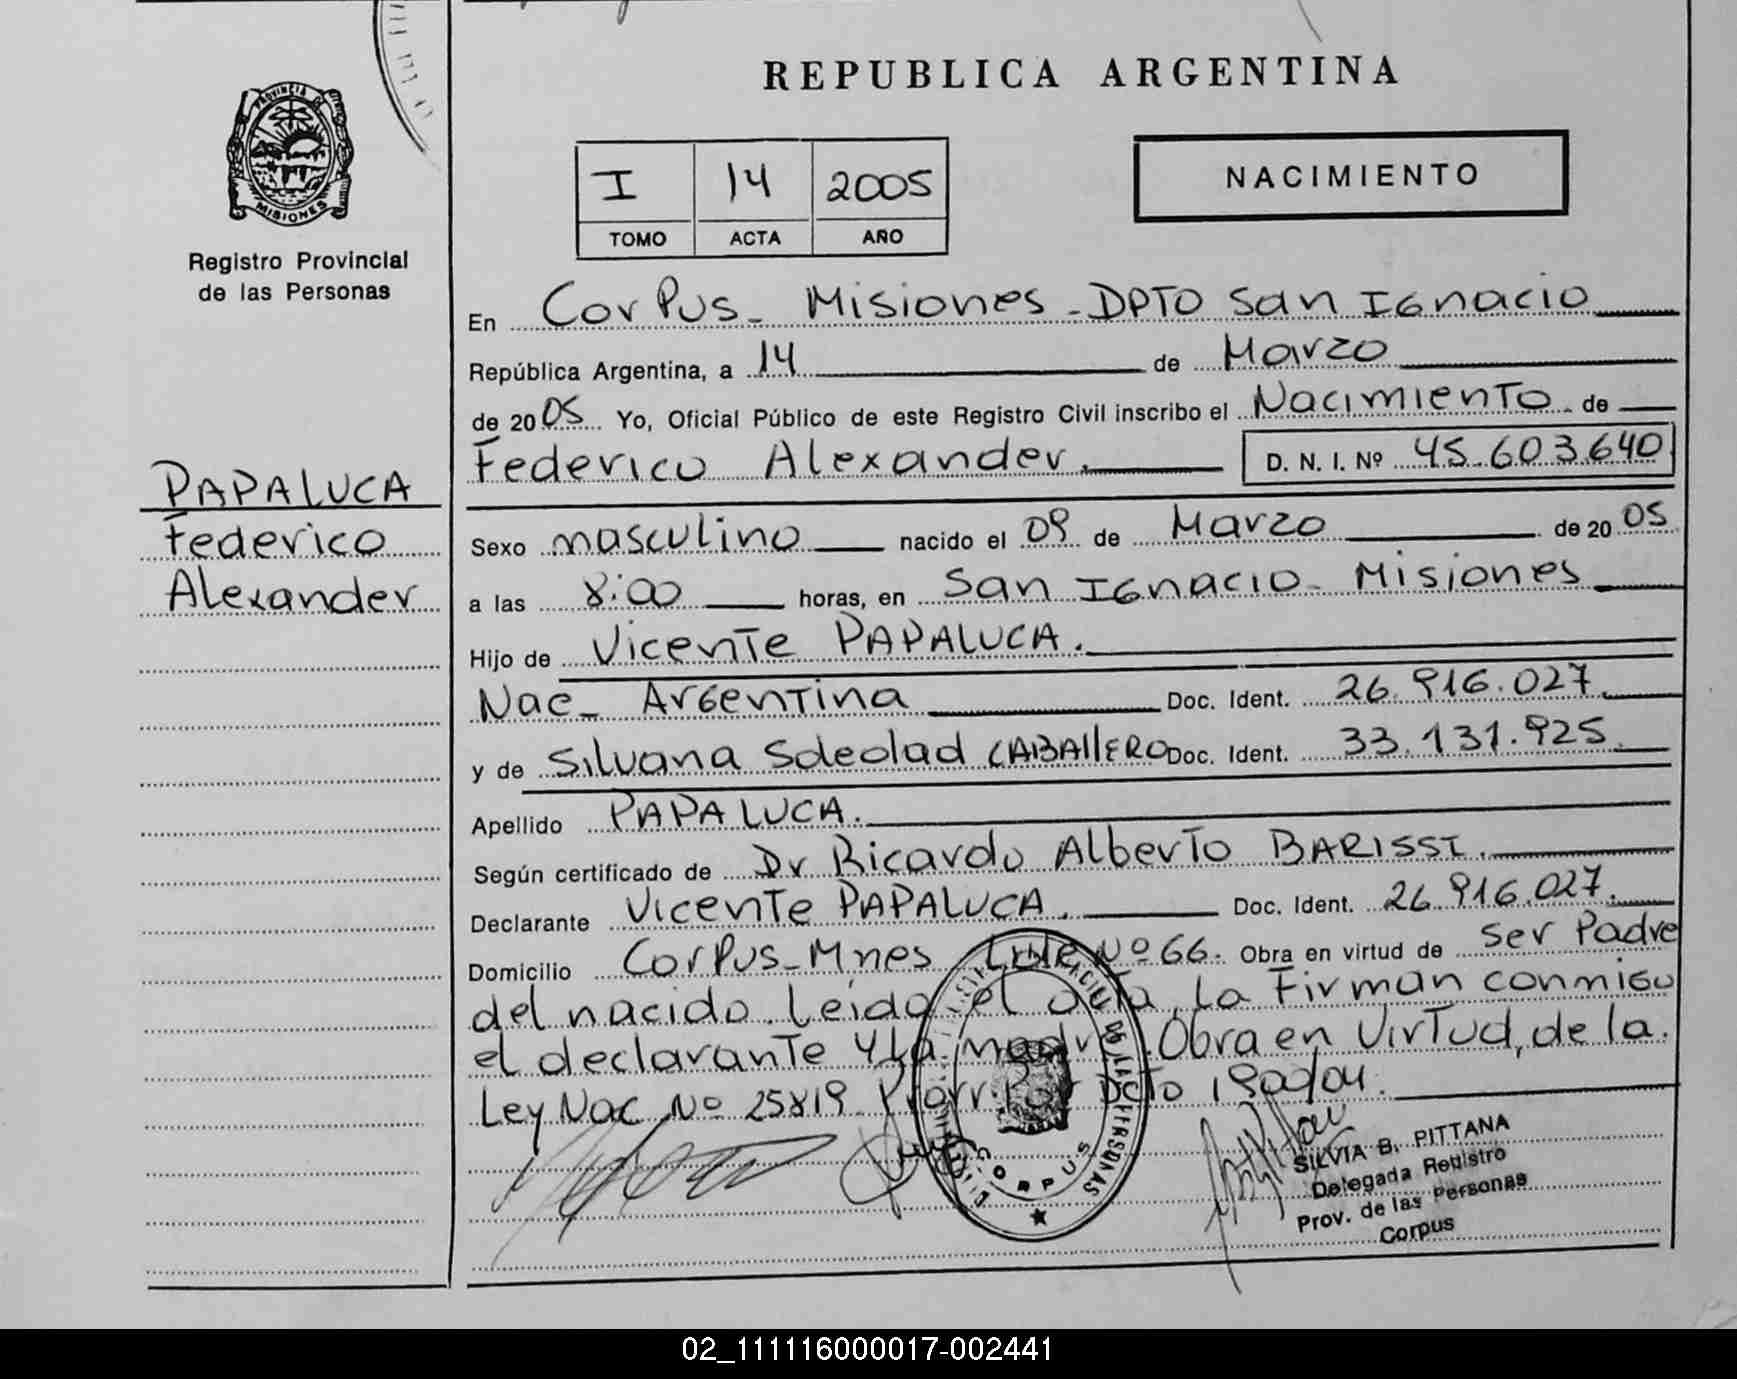 REPUBLICA ARGENTINA
PROVINCIA DE
MISIONES
Registro Provincial
de las Personas
I 14 2005
TOMO ACTA AÑO
NACIMIENTO
En Corpus - Misiones - DPTO San Ignacio
República Argentina, a 14 de Marzo
de 2005 Yo, Oficial Público de este Registro Civil inscribo el Nacimiento de
Federico Alexander. D. N. I. Nº 45.603.640
PAPALUCA
Federico
Alexander
Sexo masculino nacido el 09 de Marzo de 2005
a las 8:00 horas, en San Ignacio - Misiones
Hijo de Vicente PAPALUCA.
Nac- Argentina Doc. Ident. 26.916.027
y de Silvana Soledad CABAllERO Doc. Ident. 33.131.925
Apellido PAPALUCA.
Según certificado de Dr Ricardo Alberto BARISSI.
Declarante Vicente PAPALUCA. Doc. Ident. 26.916.027.
Domicilio Corpus - Mnes Lote Nº 66. Obra en virtud de ser Padre
del nacido. Leida el acta, La Firman conmigo
el declarante y La madre. Obra en Virtud, de la
Ley Nac Nº 25819 Prorr. Por Dcto 1900/04.
CORPUS
SILVIA B. PITTANA
Delegada Registro
Prov. de las Personas
Corpus
02_111116000017-002441